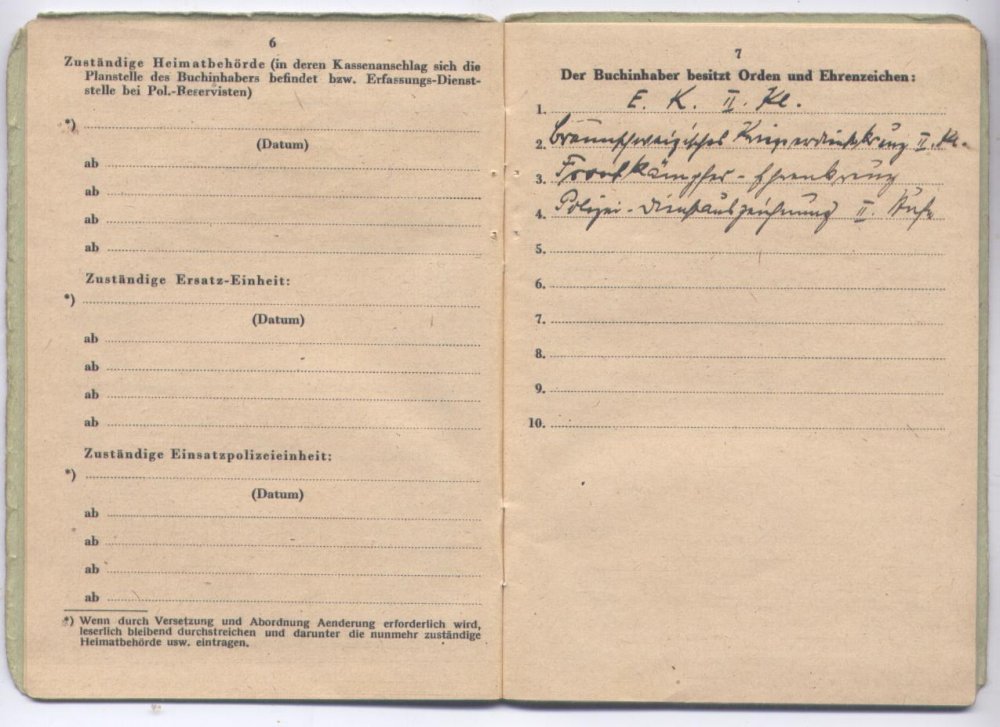 6
Zuständige Heimatbehörde (in deren Kassenanschlag sich die
Planstelle des Buchinhabers befindet bzw. Erfassungs-Dienst-
stelle bei Pol.-Reservisten)
*)
(Datum)
ab
ab
ab
ab
Zuständige Ersatz-Einheit:
*)
(Datum)
ab
ab
ab
ab
Zuständige Einsatzpolizeieinheit:
*)
(Datum)
ab
ab
ab
ab
*) Wenn durch Versetzung und Abordnung Aenderung erforderlich wird,
leserlich bleibend durchstreichen und darunter die nunmehr zuständige
Heimatbehörde usw. eintragen.
7
Der Buchinhaber besitzt Orden und Ehrenzeichen:
1. E. K. II. Kl.
2. Braunschweigisches Kriegsverdienstkreuz II. Kl.
3. Frontkämpfer-Ehrenkreuz
4. Polizei-Dienstauszeichnung II. Stufe
5.
6.
7.
8.
9.
10.